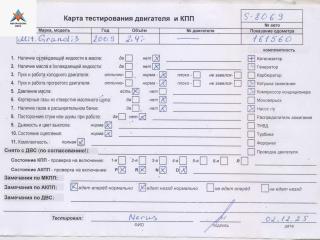 Карта тестирования двигателя и КПП
S-8069
№ авто
Марка, модель Год Объём № двигателя Показание одометра
Mit. Grandis 2009 2.4i 161560
комплектность
1. Наличие охлаждающей жидкости и масла: да нет
2. Наличие масла в охлаждающей жидкости: да нет
3. Пуск и работа холодного двигателя: отлично норма плохо
4. Пуск и работа прогретого двигателя: отлично норма плохо
5. Давление масла: есть нет
6. Картерные газы из отверстия маслозалив. горл: да нет
7. Наличие газов в расширительном бачке: да нет
8. Посторонние стуки или шумы при работе: да нет
9. Дымность и цвет выхлопа: норма
10. Состояние сцепления: норма
11. Комплектность: полная
Генератор
Карбюратор
Компрессор кондиционера
Моновпрыск
Насос г/у
Распределитель зажигания
ТНВД
Турбина
Форсунки
Проводка двигателя
Снято с ДВС (по согласованию!):
Состояние КПП - проверка на включение: 1-я 2-я 3-я 4-я 5-я R
Состояние АКПП - проверка на включение: P R N D
Замечания по МКПП:
Замечания по АКПП: едет вперёд нормально едет назад нормально не едет вперёд не едет назад
Замечания по ДВС:
Тестировал: Nerus 02.12.25
ФИО подпись дата